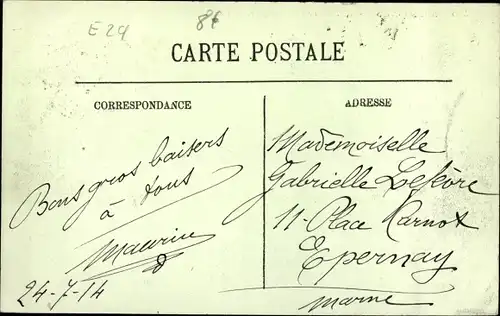 E 29
8f
CARTE POSTALE
CORRESPONDANCE
Bons gros baisers
à tous
Maurice
24-7-14
ADRESSE
Mademoiselle
Gabrielle Lefèvre
11- Place Carnot
Epernay
Marne